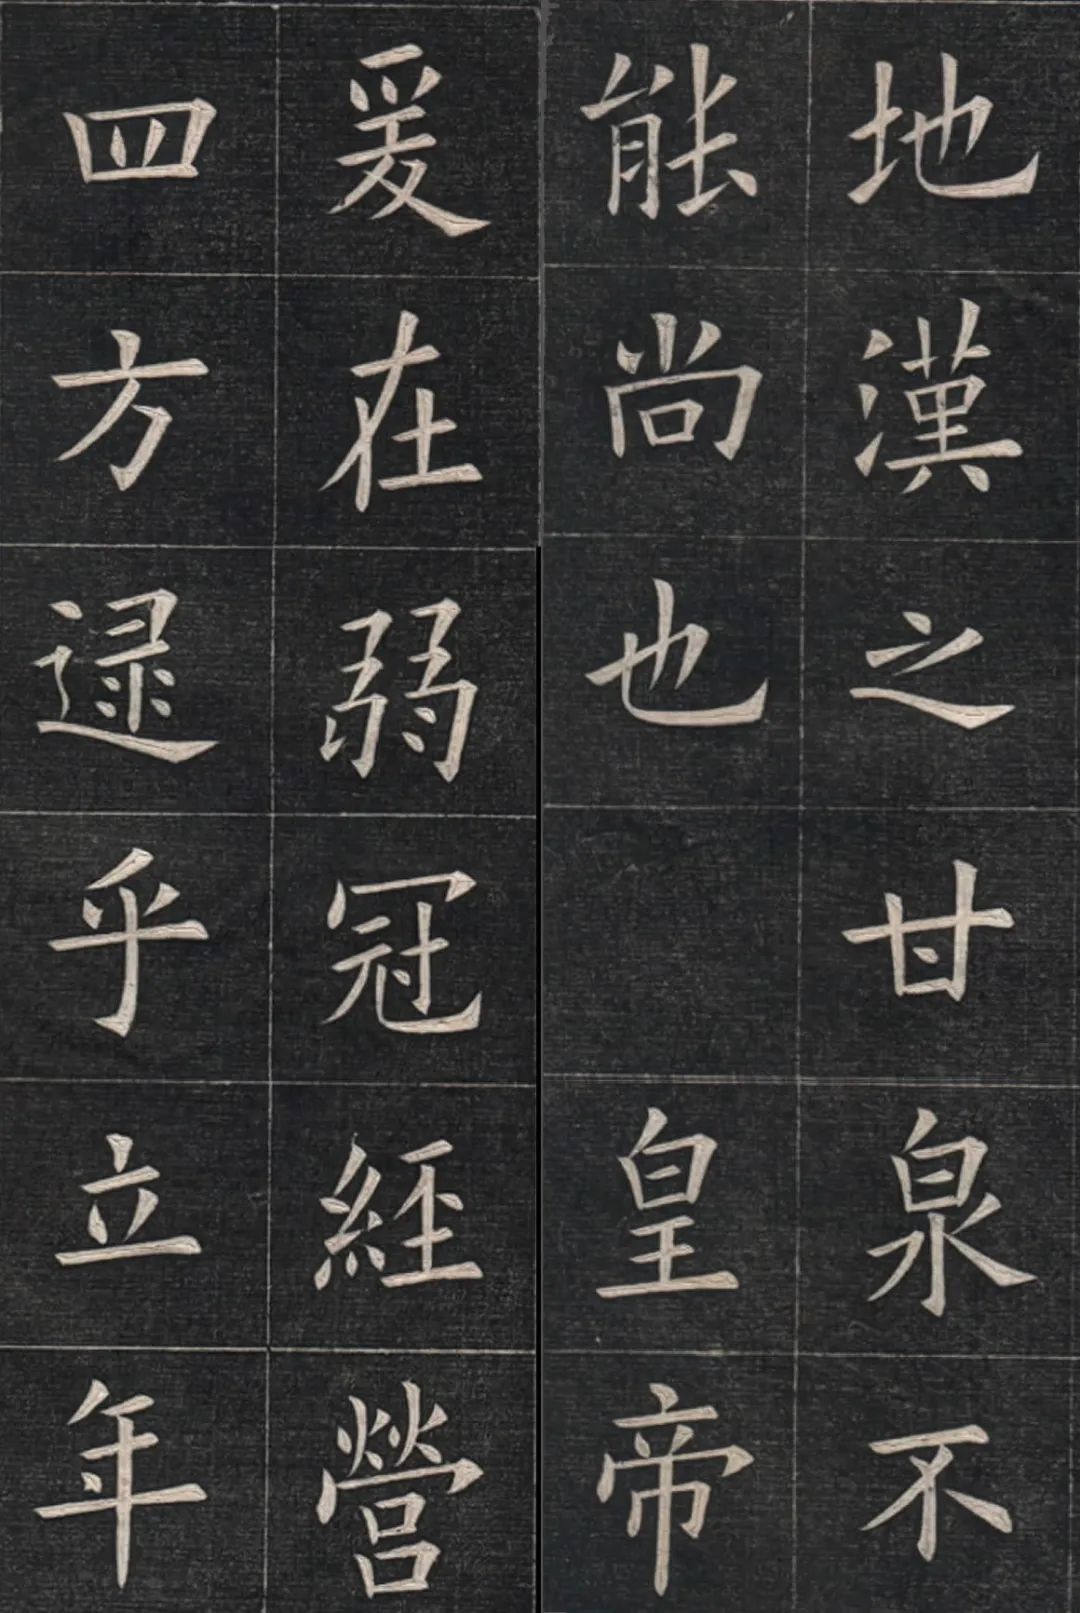 地漢之甘泉不
能尚也皇帝
爰在弱冠經營
四方逯乎立年